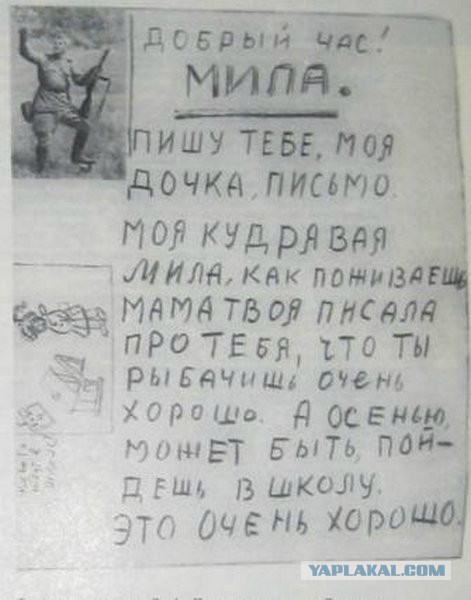 ДОБРЫЙ ЧАС!
МИЛА.
ПИШУ ТЕБЕ, МОЯ
ДОЧКА, ПИСЬМО.
МОЯ КУДРЯВАЯ
МИЛА, КАК ПОЖИВАЕШЬ
МАМА ТВОЯ ПИСАЛА
ПРО ТЕБЯ, ЧТО ТЫ
РЫБАЧИШЬ ОЧЕНЬ
ХОРОШО. А ОСЕНЬЮ,
МОЖЕТ БЫТЬ, ПОЙ-
ДЕШЬ В ШКОЛУ.
ЭТО ОЧЕНЬ ХОРОШО.
YAPLAKAL.COM